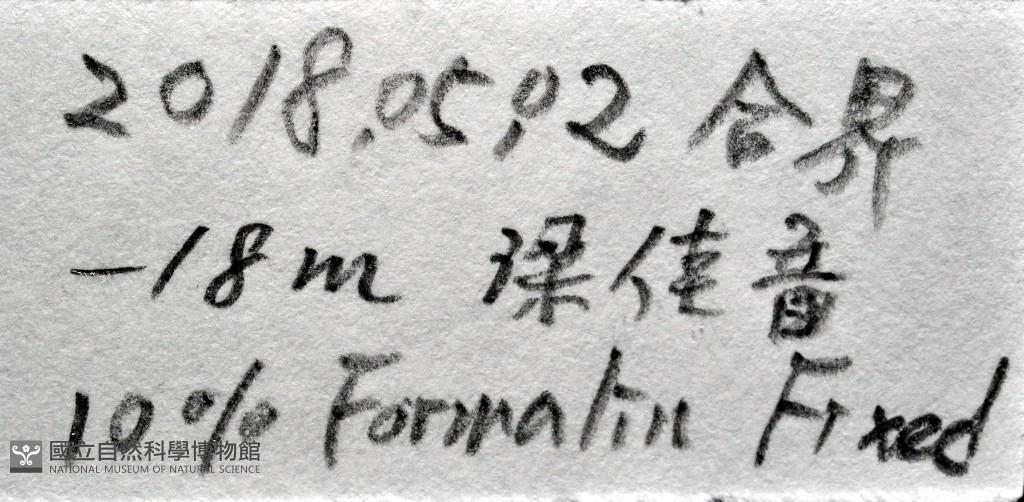 2018.05.02 合界
-18m 梁佳音
10% Formalin Fixed
國立自然科學博物館
NATIONAL MUSEUM OF NATURAL SCIENCE